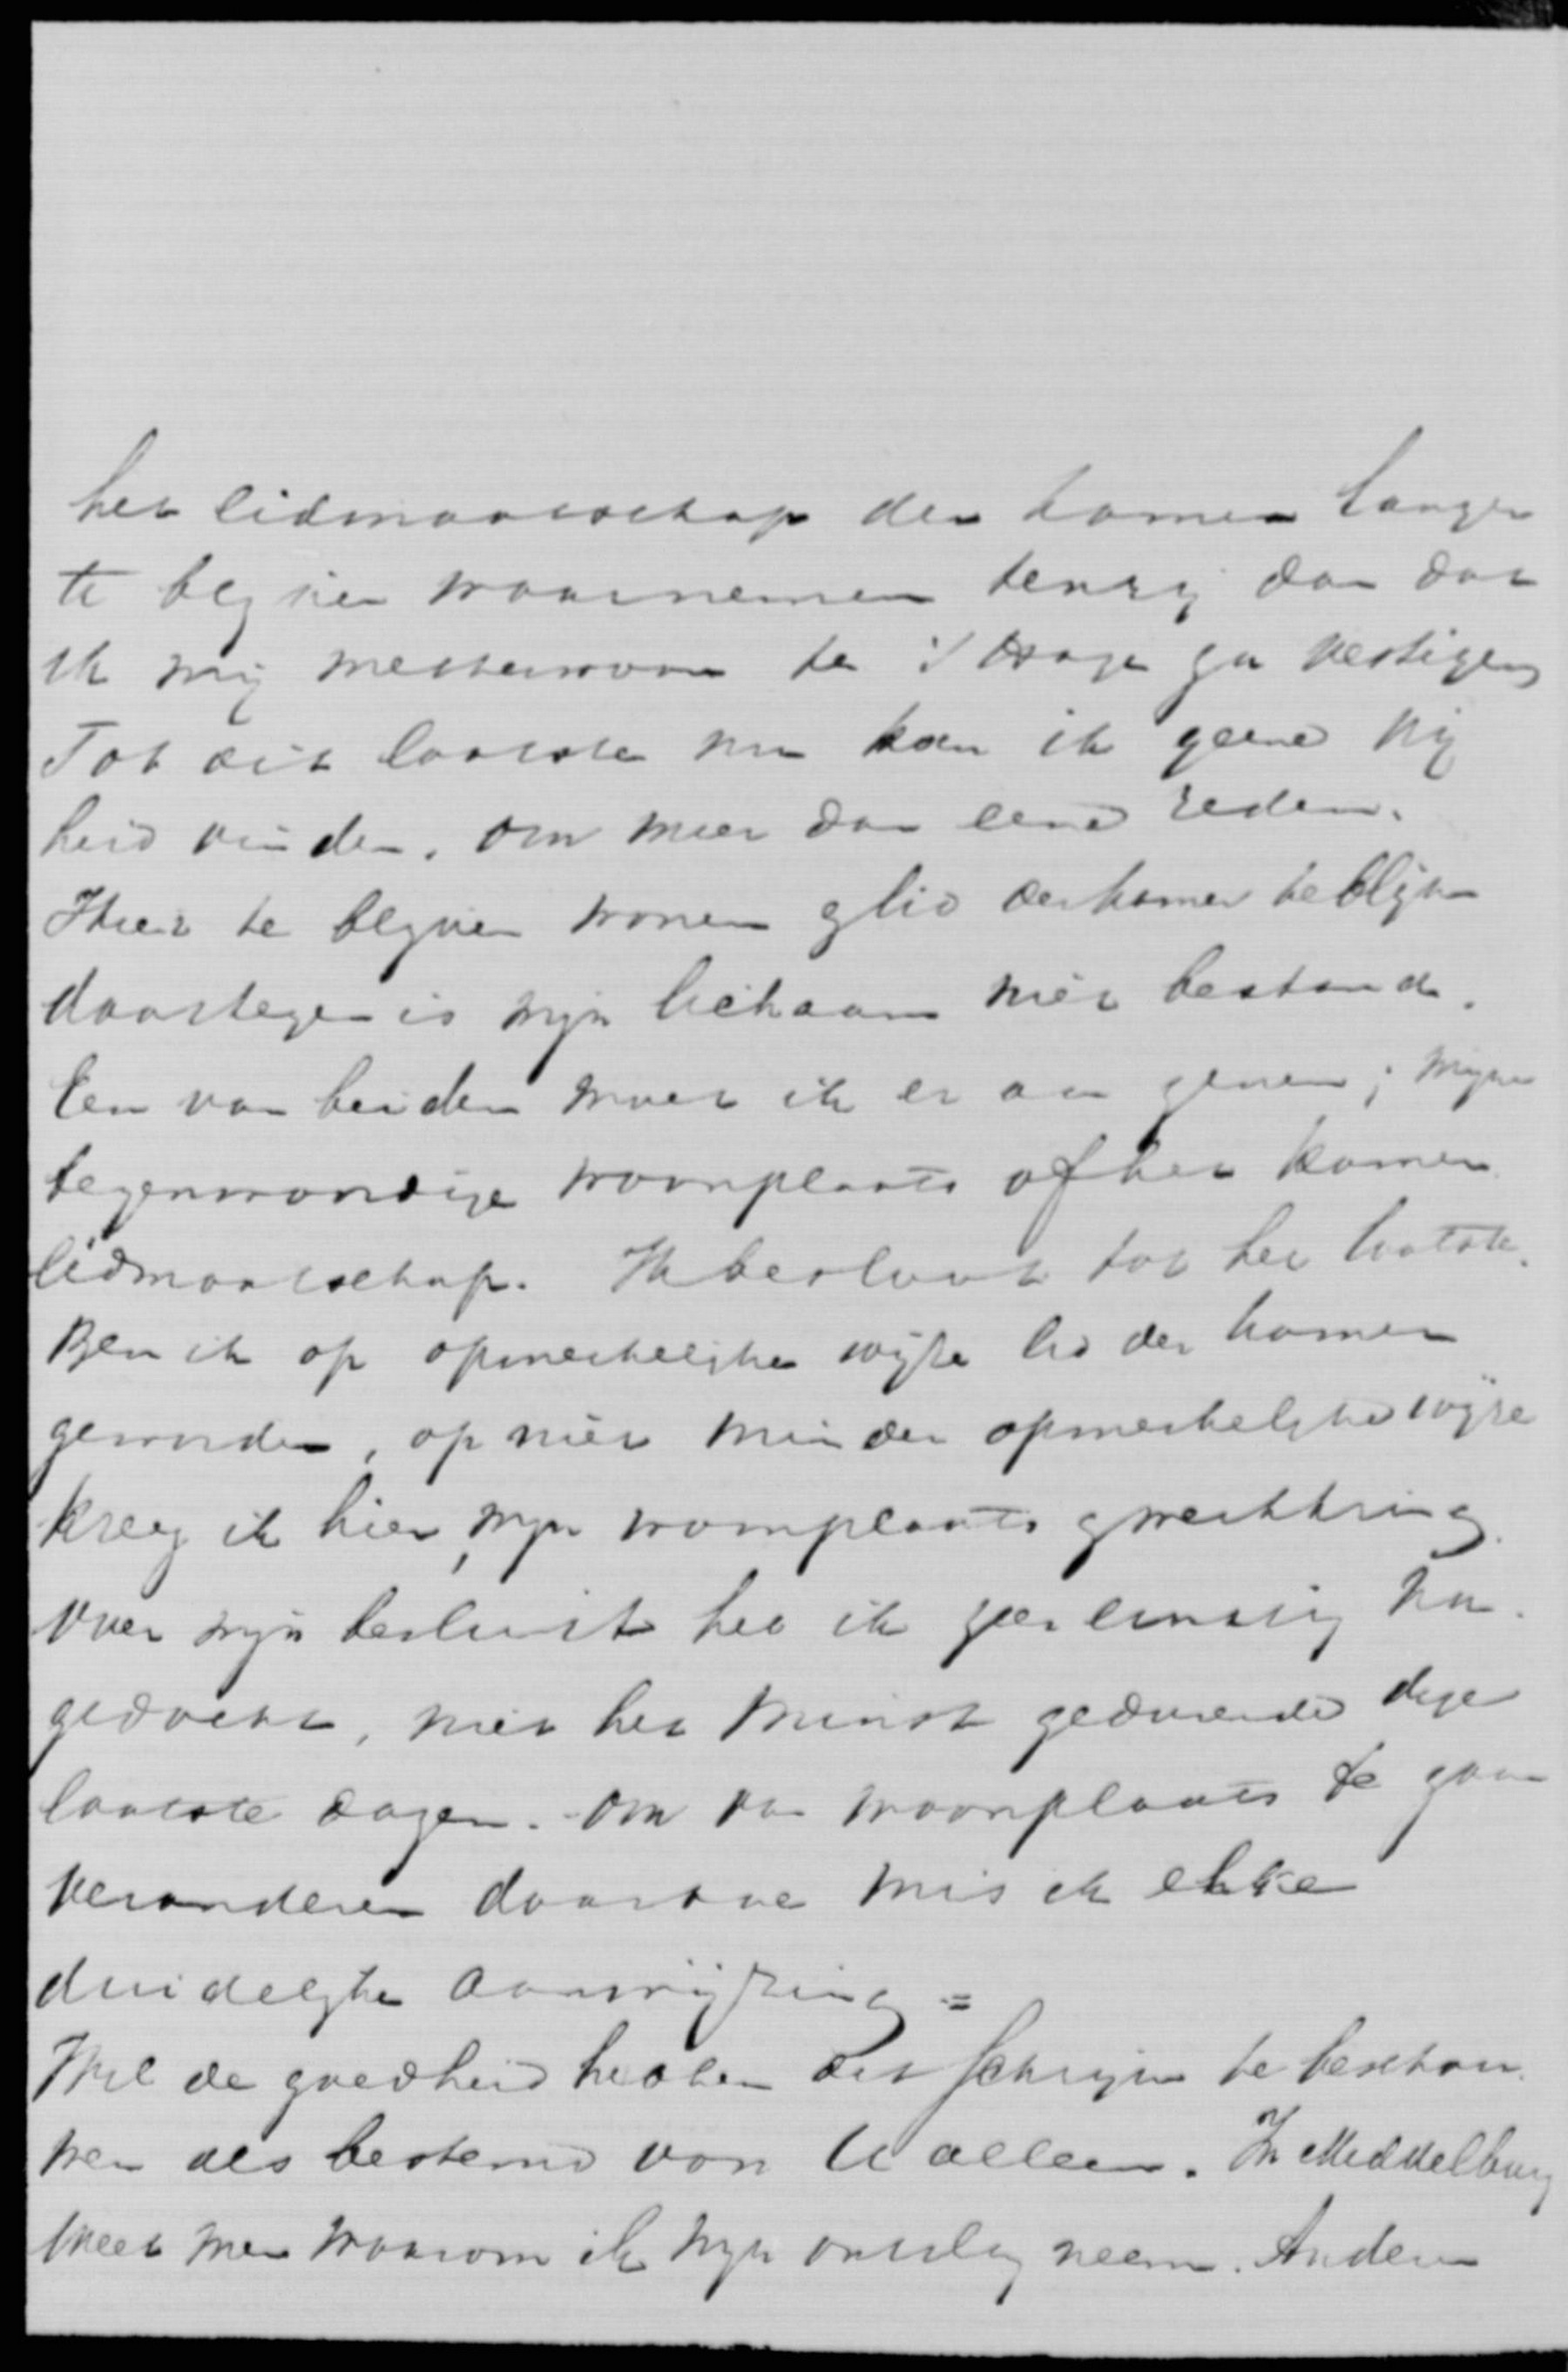 het lidmaatschap der kamer langer
te blijven waarnemen tenzij dan dat
ik mij metterwoon te 's Hage ga vestigen
Tot dit laatste nu kan ik geene vrij
heid vinden, om meer dan eene reden.
Hier te blijven wonen & lid der kamer te blijven
daartegen is mijn lichaam niet bestand.
Een van beiden moet ik er aan geven; mijne
tegenwoordige woonplaats of het kamer
lidmaatschap. Ik besloot tot het laatste.
Ben ik op opmerkelijke wijze lid der kamer
geworden, op niet minder opmerkelijke wijze
kreeg ik hier mijn woonplaats & werkkring.
Over mijn besluit heb ik zeer ernstig na
gedacht, niet het minst gedurende deze
laatste dagen. Om van woonplaats te gaan
veranderen daartoe mis ik elke
duidelijke aanwijzing =
Wil de goedheid hebben dit schrijven te beschou
wen als bestemd voor U alleen. In Middelburg
weet men waarom ik mijn ontslag neem. Anderen